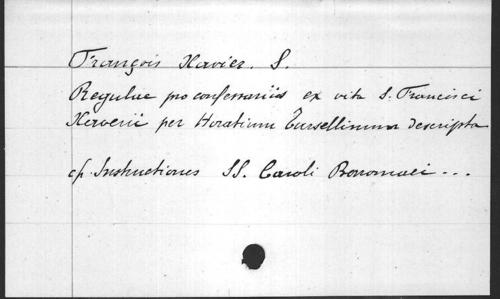 François Xavier. S.
Regulae pro confessariis ex vita S. Francisci
Xaverii per Horatium Tursellinum descripta
cf. Instructiones SS. Caroli Borromaei ...